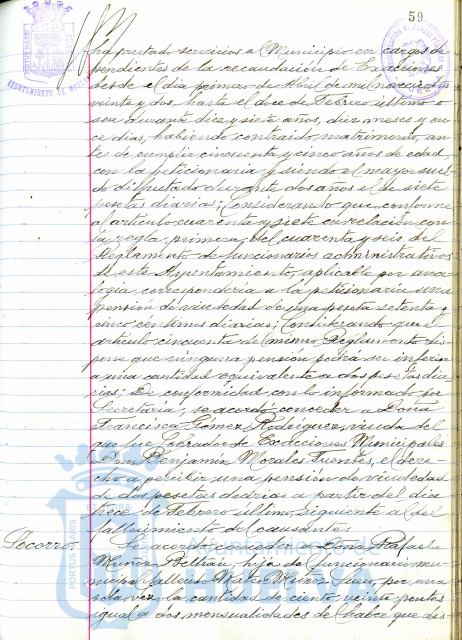 59
ha prestado servicios al Municipio en cargos de-
pendientes de la recaudación de Exacciones
desde el día primero de Abril de mil novecientos
veinte y dos, hasta el doce de Febrero último o
sea durante diez y siete años, diez meses y on-
ce días, habiendo contraido matrimonio, an-
tes de cumplir cincuenta y cinco años de edad,
con la peticionaria y siendo el mayor suel-
do disfrutado durante dos años el de siete
pesetas diarias; Considerando que conforme
al artículo cuarenta y siete en relación con
la regla primera del cuarenta y seis del
Reglamento de funcionarios administrativos
de este Ayuntamiento, aplicable por ana-
logia, correspondería a la peticionaria una
pensión de viudedad de una peseta setenta y
cinco centimos diarias; Considerando que el
artículo cincuenta del mismo Reglamento dis-
pone que ninguna pensión podrá ser inferior
a una cantidad equivalente a dos pesetas dia-
rias; De conformidad con lo informado por
Secretaría; se acordó conceder a Doña
Francisca Gómez Rodríguez, viuda del
que fue Cobrador de Exacciones Municipales
Don Benjamín Morales Fuentes, el dere-
cho a percibir una pensión de viudedad
de dos pesetas diarias a partir del día
trece de Febrero último, siguiente al del
fallecimiento del causante.
Socorro. Se acordó conceder a Doña Rafaela
Muñoz Beltrán, hija del funcionario mu-
nicipal fallecido Mateo Muñoz, por una
sola vez, la cantidad de ciento veinte pesetas
igual a dos mensualidades del haber que dis-
Ayuntamiento de
PORTUS MARIS